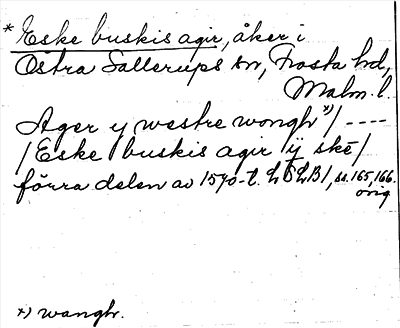 * Eske buskis agir, åker i
Östra Sallerups sn, Frosta hd,
Malm. l.
Ager y westre wongh x) / ----
/ Eske buskis agir ÿ skē /
förra delen av 1570-t. LÖLB 1, ss. 165, 166.
orig
x) wangh.